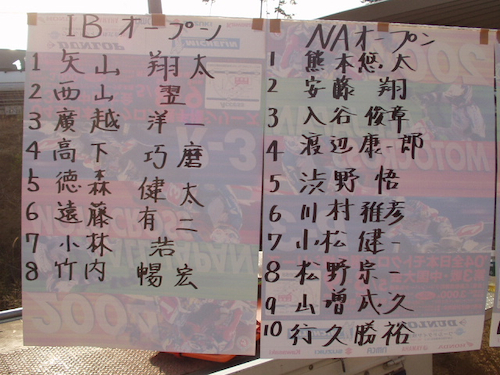 IBオープン
1 矢山 翔太
2 西山 翌
3 廣越 洋一
4 高下 巧磨
5 徳森 健太
6 遠藤 有二
7 小林 浩
8 竹内 暢宏
NAオープン
1 熊本悠太
2 安藤 翔
3 入谷俊章
4 渡辺康一郎
5 渋野 悟
6 川村雅彦
7 小松健一
8 松野宗一
9 山増成久
10 行久勝裕